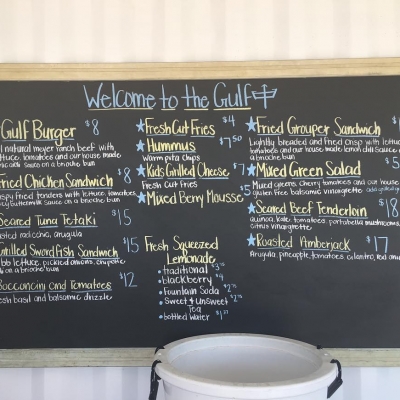 Welcome to the Gulf
Gulf Burger $8
natural meyer ranch beef with
lettuce, tomatoes and our house made
sauce on a brioche bun
Fried Chicken Sandwich $8
crispy fried tenders with lettuce, tomatoes,
buttermilk sauce on a brioche bun
Seared Tuna Tetaki $15
radicchio, arugula
Grilled Swordfish Sandwich $15
bibb lettuce, pickled onions, chipotle
on a brioche bun
Bocconcini and Tomatoes $12
fresh basil and balsamic drizzle
Fresh Cut Fries $4
Hummus $7.50
Warm pita chips
Kids Grilled Cheese $7
Fresh Cut Fries
Mixed Berry Mousse $5
Fresh Squeezed
Lemonade
• traditional
• blackberry
• Fountain Soda
• Sweet & Unsweet
Tea
• bottled Water
Fried Grouper Sandwich
Lightly breaded and fried crisp with lettuce
tomatoes and our house made lemon dill sauce
a brioche bun
Mixed Green Salad
Mixed greens, cherry tomatoes and our house
gluten free balsamic vinaigrette
Seared Beef Tenderloin $18
quinoa, kale, tomatoes, portabella mushrooms,
citrus vinaigrette
Roasted Amberjack $17
Arugula, pineapple, tomatoes, cilantro, red